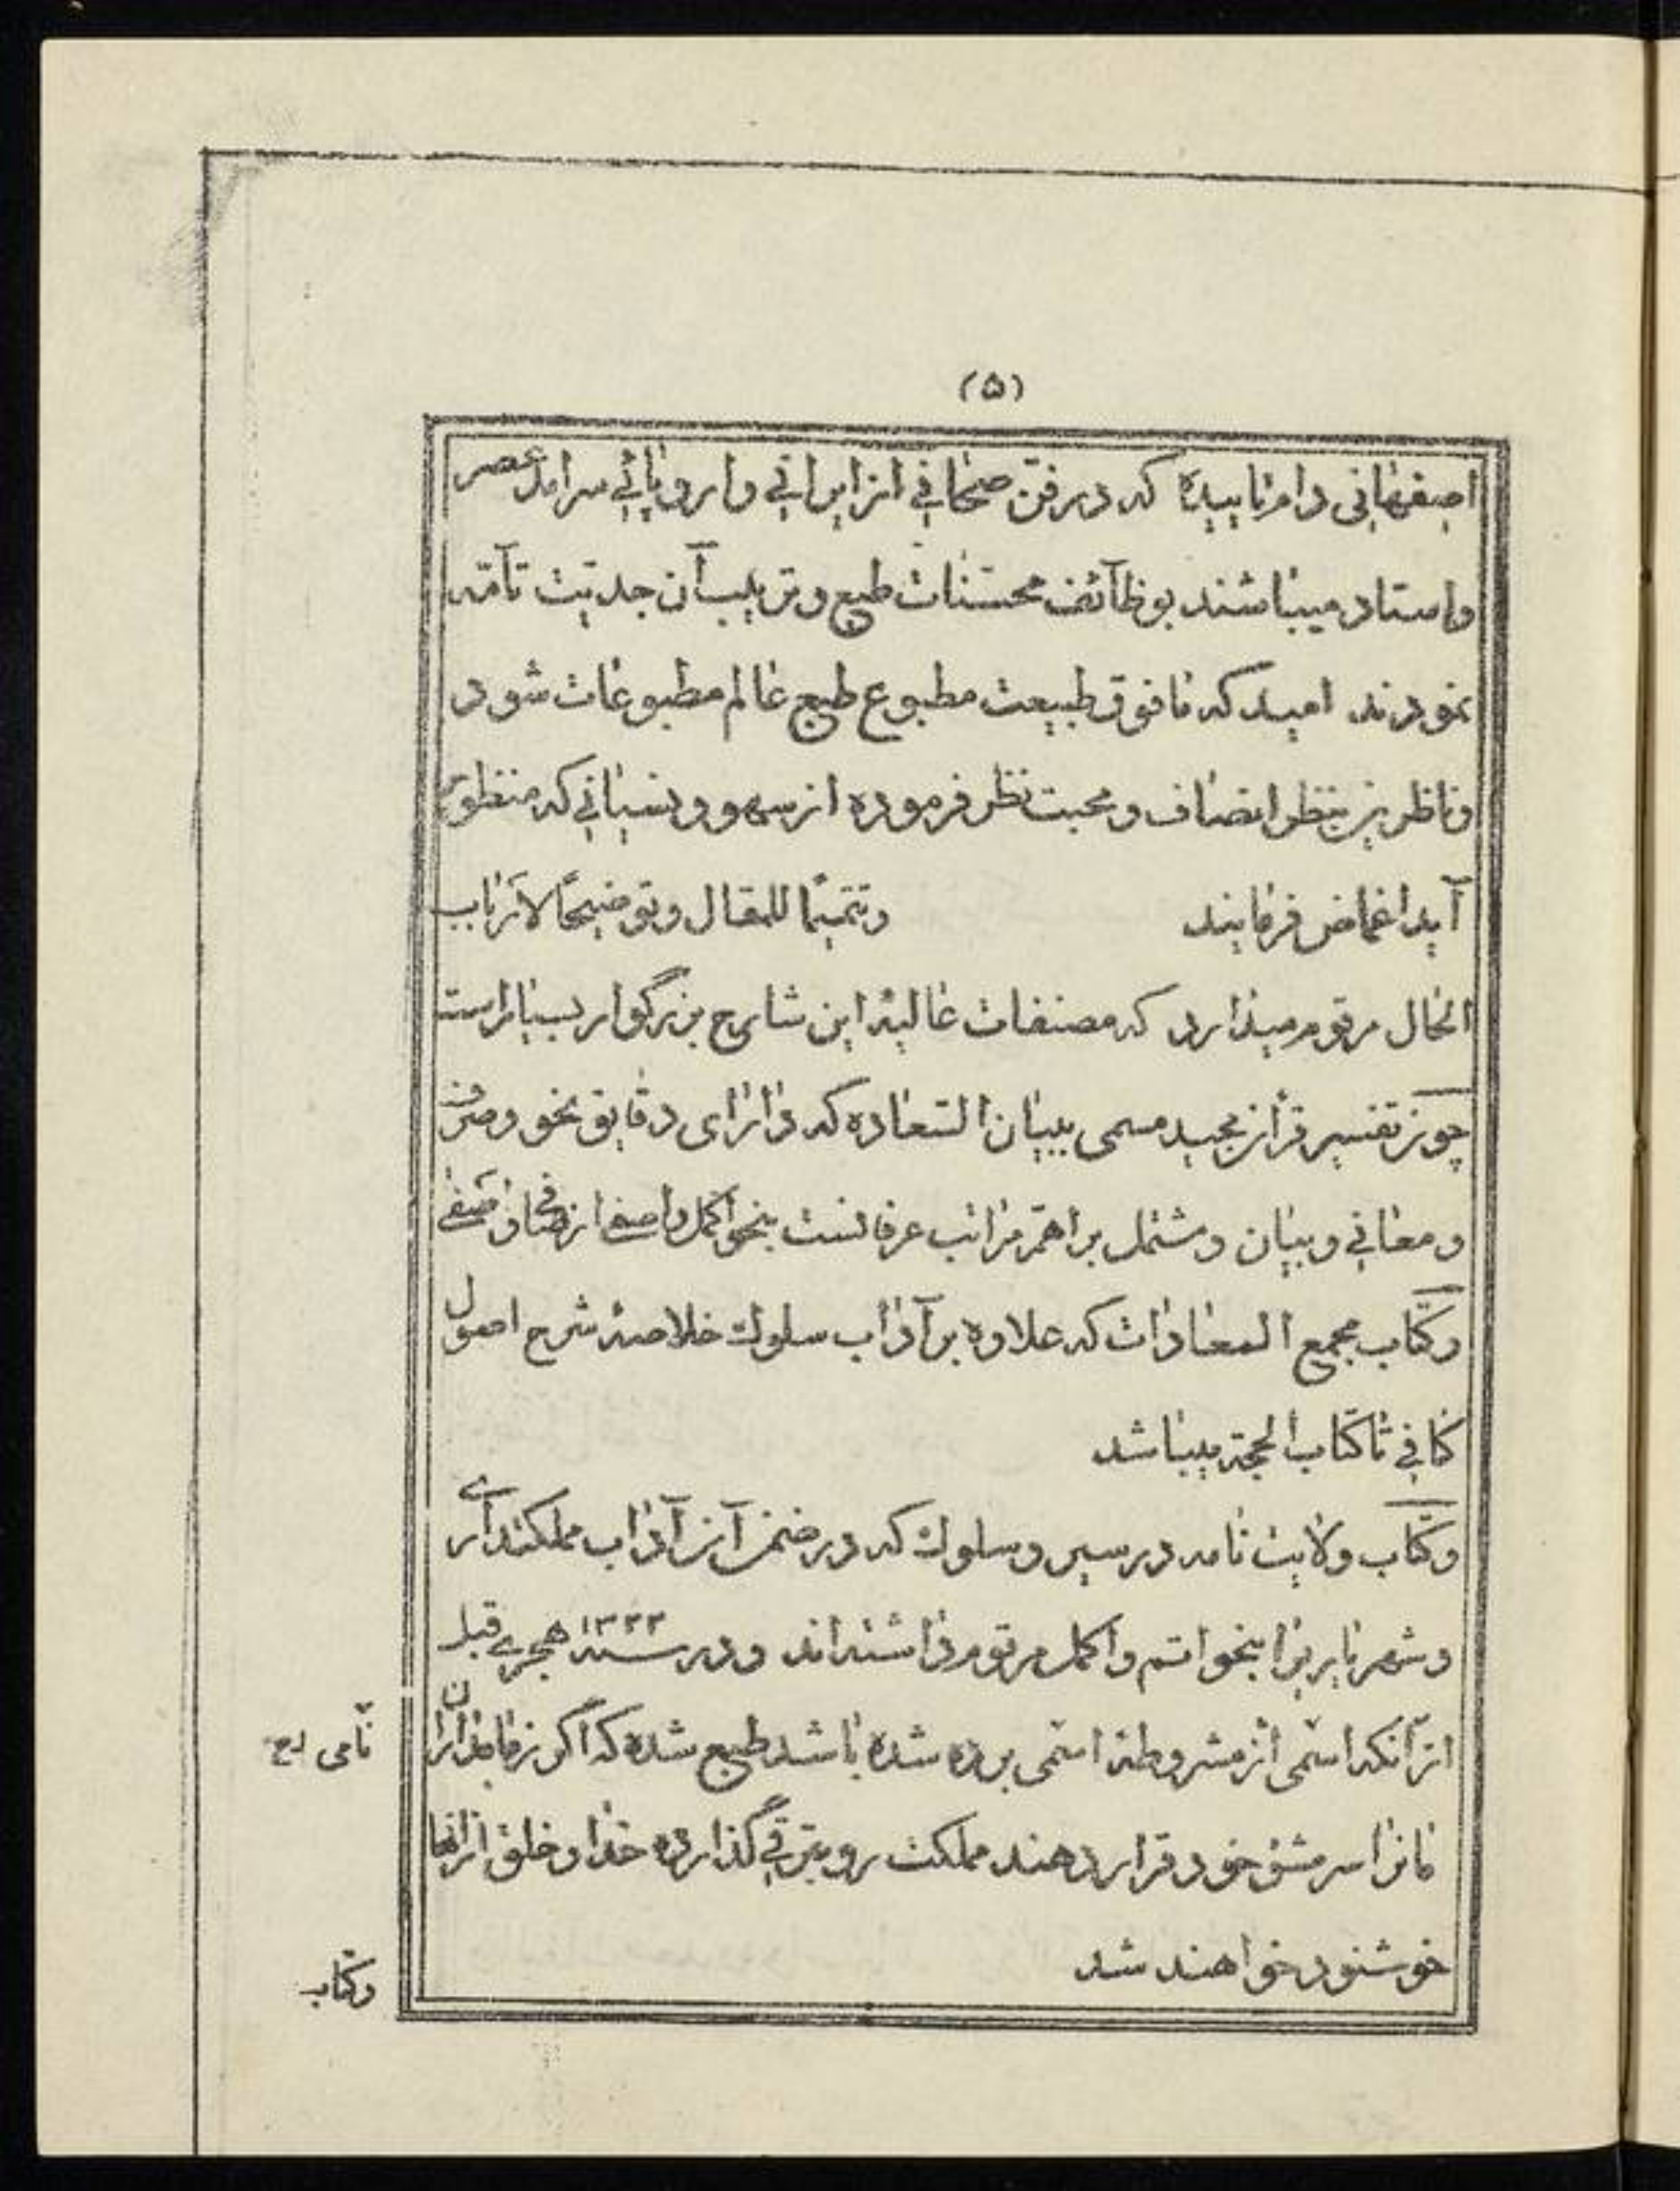 (۵)
اصفهانی دام تاییده که در فن صحافی از ایرانی و اروپائی سرامد عصر
و استاد میباشند بوظائف محسنات طبع و ترتیب آن جدیت تامّه
نمودند امید که مافوق طبیعت مطبوع طبع عالم مطبوعات شود
و ناظرین بنظر انصاف و محبت نظر فرموده از سهو و نسیانی که منظور
آید اغماض فرمایند و تتمیمًا للمقال و توضیحًا لارباب
الحال مرقوم میدارد که مصنفات عالیهٔ این شارح بزرگوار بسیار است
چون تفسیر قرآن مجید مسمی ببیان السعاده که دارای دقایق نحو و صرف
و معانی و بیان و مشتمل بر اهمّ مراتب عرفانست بنحو اکمل و اصفی از صافی و اصفی
و کتاب مجمع السعادات که علاوه بر آداب سلوک خلاصهٔ شرح اصول
کافی تا کتاب الحجة میباشد
و کتاب ولایت نامه در سیر و سلوک که در ضمن آن آداب مملکتداری
و شهریاریرا بنحو اتم و اکمل مرقوم داشته‌اند و در سنه ۱۳۲۳ هجری قبل
از آنکه اسمی از مشروطه اسمی برده شده باشد طبع شده که اگر زمامداران
مانرا سرمشق خود قرار دهند مملکت رو بترقی گذارده خدا و خلق از انها
خوشنود خواهند شد
نامی
و کتاب